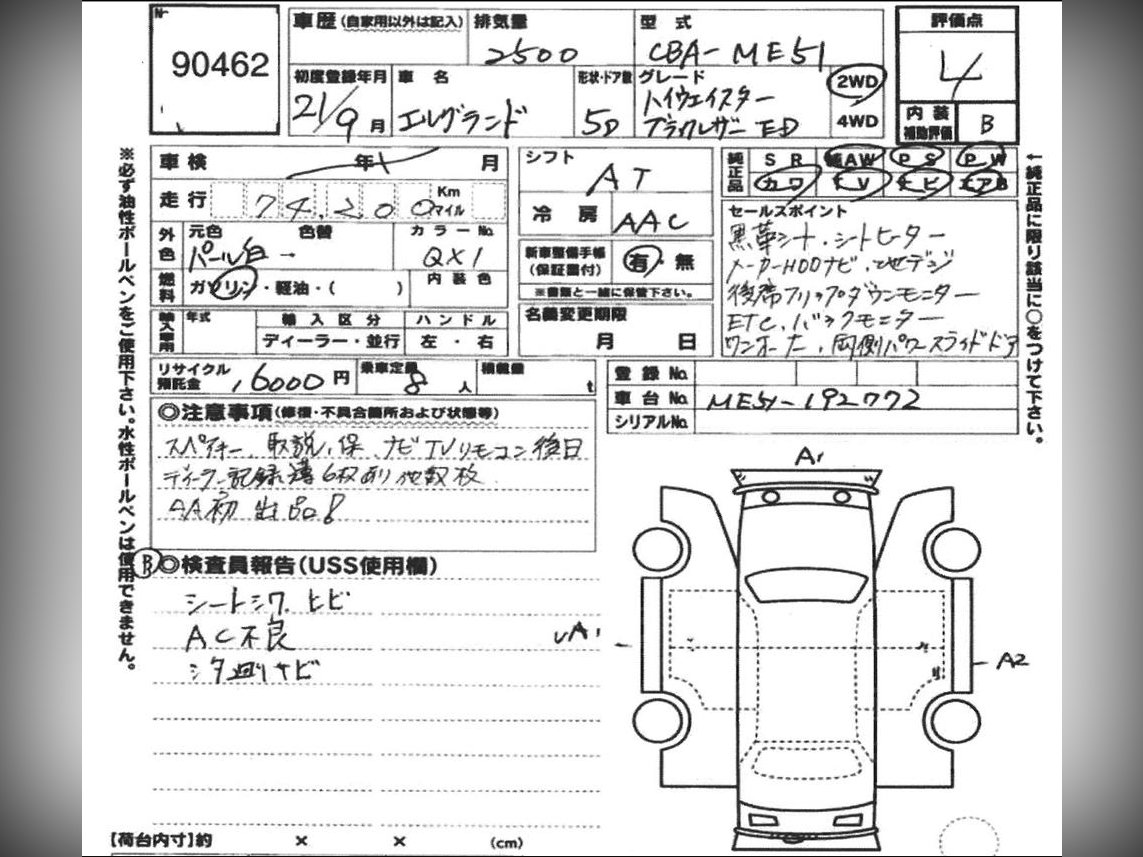 No.
90462
車歴(自家用以外は記入)
排気量
2500
型 式
CBA-ME51
評価点
4
初度登録年月
21/9月
車 名
エルグランド
形状・ドア数
5D
グレード
ハイウェイスター
ブラックレザーED
2WD
4WD
内装
補助評価
B
車検 年 月
走行 74,200 Km
マイル
外色
元色 色替
パール白 →
カラーNo.
QX1
燃料
ガソリン・軽油・( )
内装色
輸入車用
年式
輸入区分
ディーラー・並行
ハンドル
左・右
シフト
AT
冷房
AAC
新車整備手帳
(保証書付)
有・無
※書類と一緒に保管下さい。
名義変更期限
月 日
純正品
SR AW PS PW
カワ TV ナビ エアB
セールスポイント
黒革シート・シートヒーター
メーカーHDDナビ・地デジ
後席フリップダウンモニター
ETC、バックモニター
ワンオーナー、両側パワースライドドア
※必ず油性ボールペンをご使用下さい。水性ボールペンは使用できません。
←純正品に限り該当に○をつけて下さい。
リサイクル
預託金
16000円
乗車定員
8人
積載量
t
登録No.
車台No. ME51-192772
シリアルNo.
◎注意事項(修復・不具合箇所および状態等)
スペアキー、取説、保、ナビTVリモコン後日
ディーラー記録簿6枚あり他数枚
AA初出品!
B
◎検査員報告(USS使用欄)
シートシワ、ヒビ
AC不良
シタ廻りサビ
A1
A1
A2
【荷台内寸】約 × × (cm)